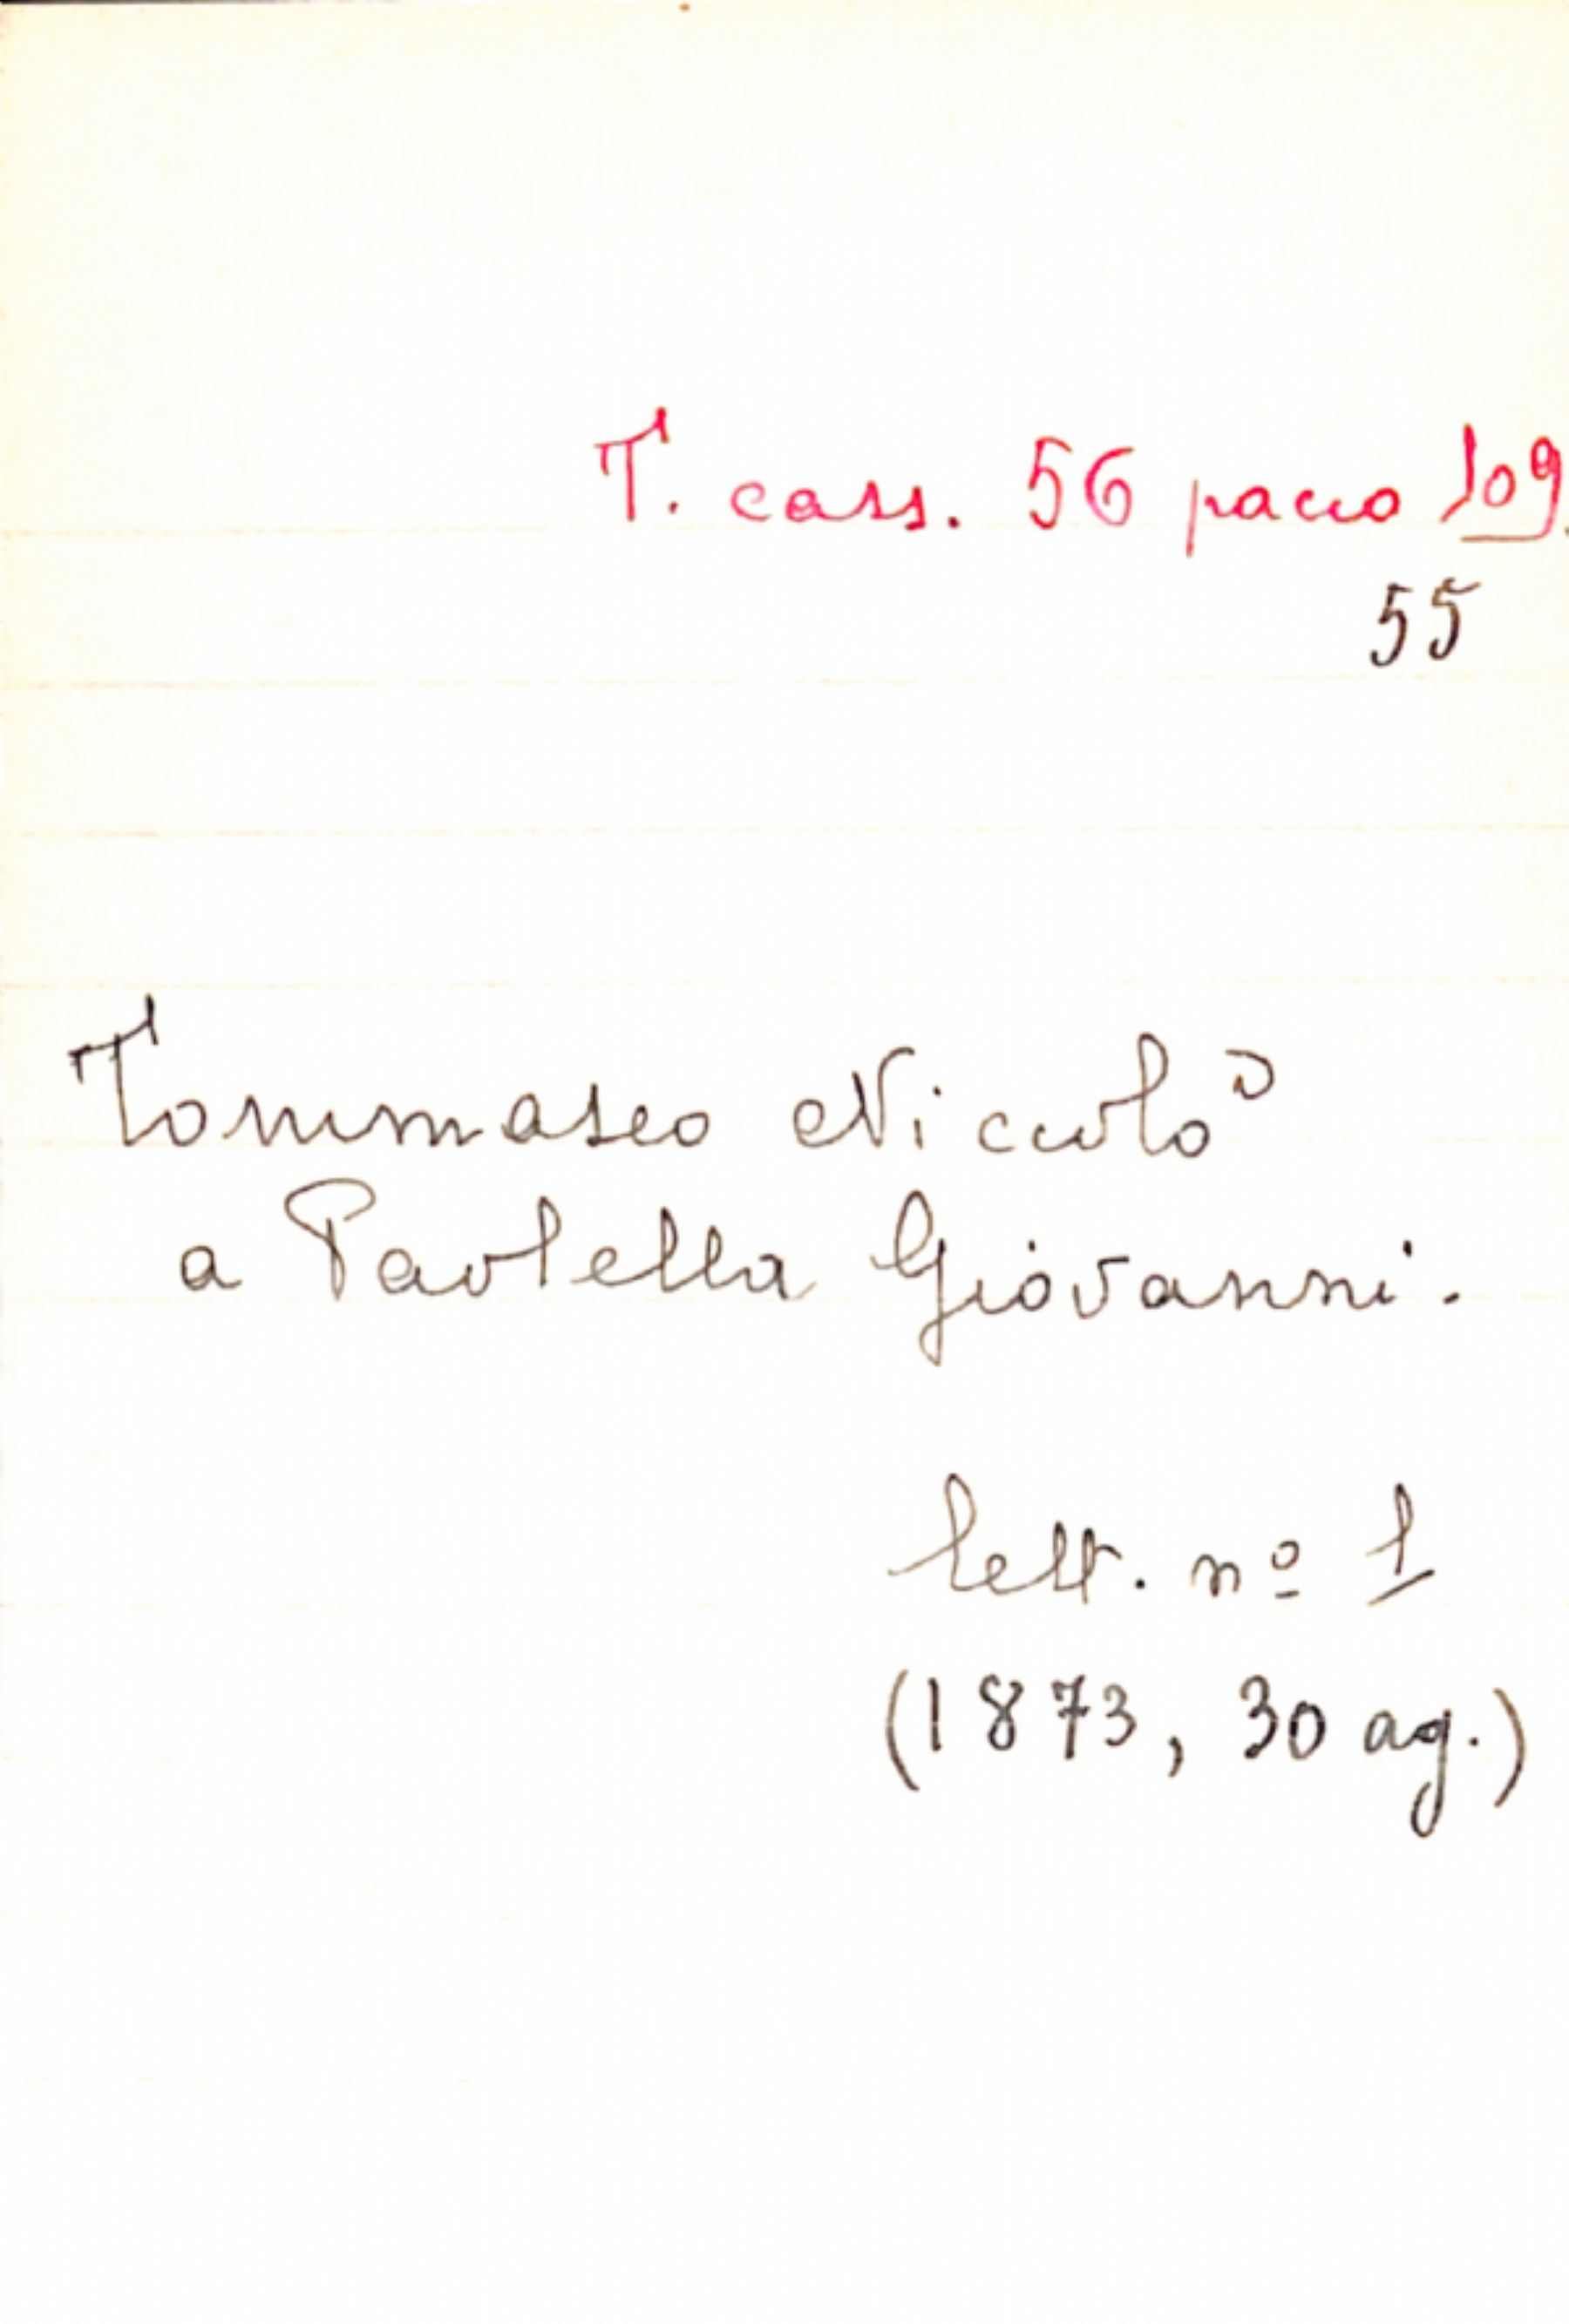 T. cass. 56 pacco 109.
55
Tommaseo Niccolò
a Paolella Giovanni.
lett. nº 1
(1873, 30 ag.)